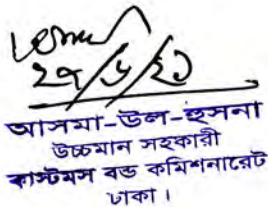 ২৭/৬/২১
আসমা-উল-হুসনা
উচ্চমান সহকারী
কাস্টমস বন্ড কমিশনারেট
ঢাকা।